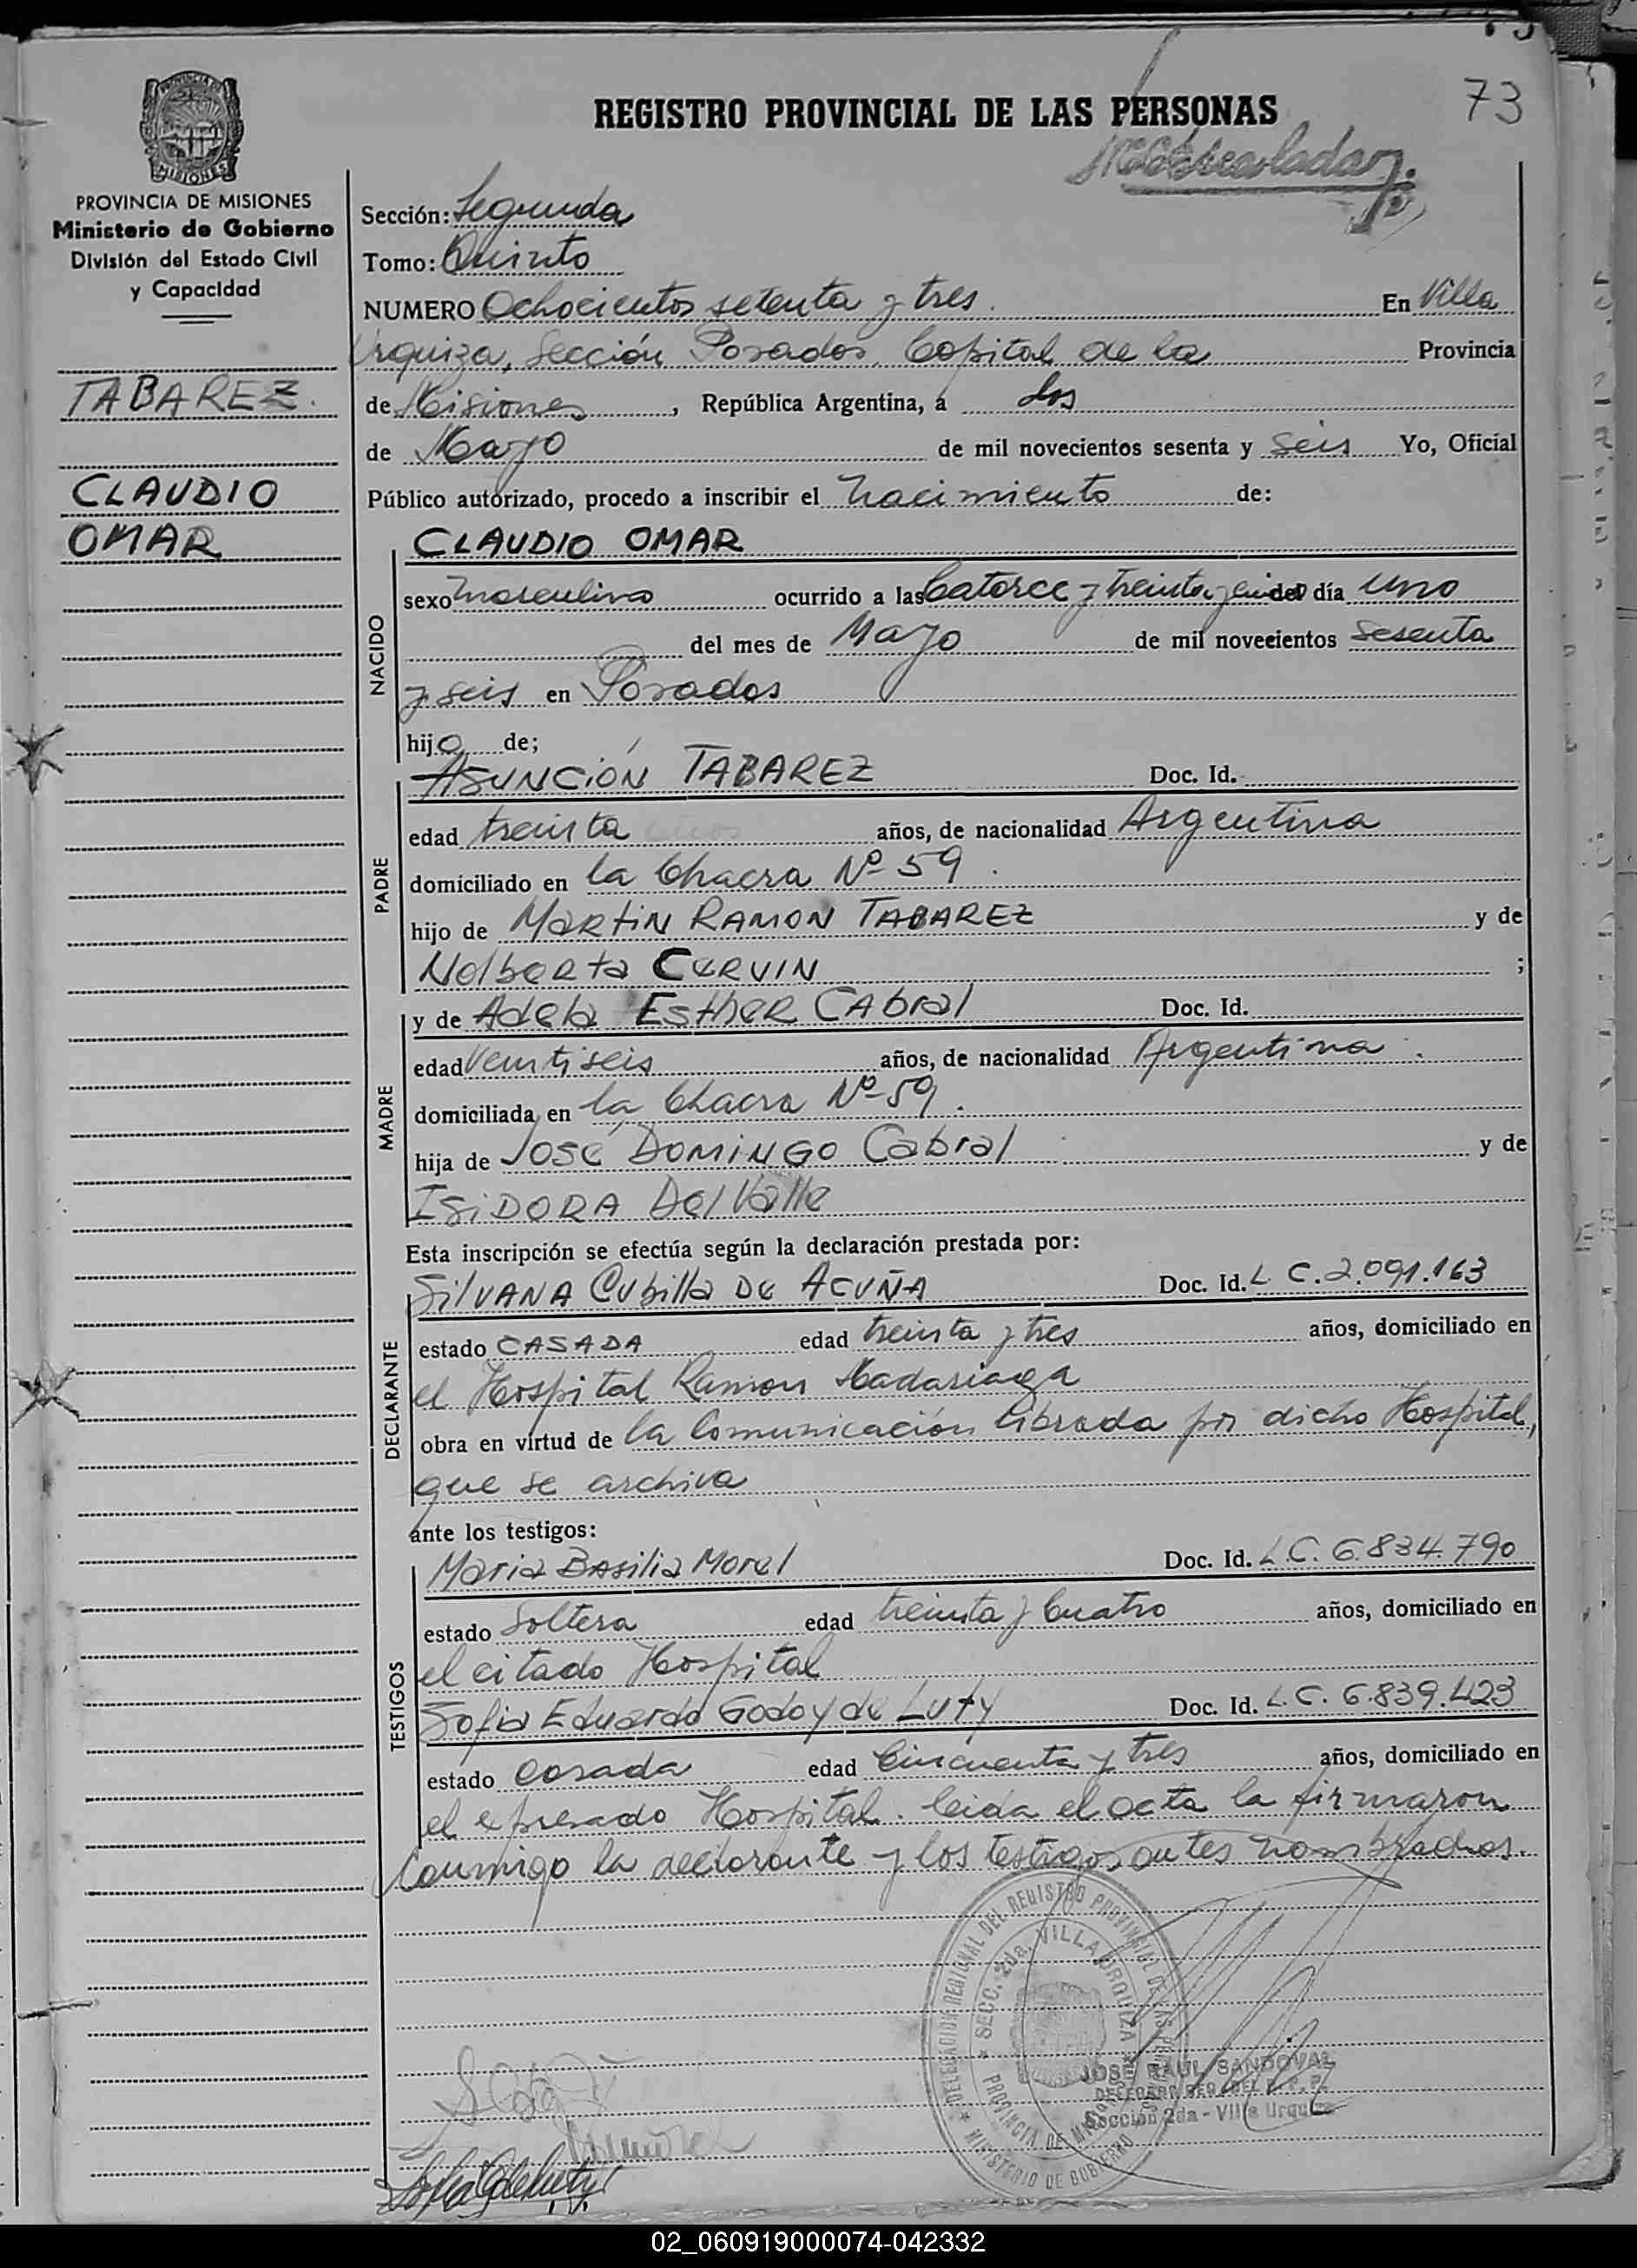 73
REGISTRO PROVINCIAL DE LAS PERSONAS
PROVINCIA DE MISIONES
Ministerio de Gobierno
División del Estado Civil
y Capacidad
TABAREZ.
CLAUDIO
OMAR
Sección: Segunda
Tomo: Quinto
NUMERO Ochocientos setenta y tres. En Villa
Urquiza, Sección Posadas, Capital de la Provincia
de Misiones, República Argentina, a dos
de Mayo de mil novecientos sesenta y seis Yo, Oficial
Público autorizado, procedo a inscribir el nacimiento de:
CLAUDIO OMAR
NACIDO
sexo masculino ocurrido a las Catorce y treinta y del día uno
del mes de Mayo de mil novecientos sesenta
y seis en Posadas
hijo de;
ASUNCIÓN TABAREZ Doc. Id.
PADRE
edad treinta años, de nacionalidad Argentina
domiciliado en la Chacra Nº 59.
hijo de MARTIN RAMON TABAREZ y de
Nolberta CERVIN ;
y de Adela Esther CAbral Doc. Id.
MADRE
edad veintiseis años, de nacionalidad Argentina.
domiciliada en la Chacra Nº 59.
hija de José DOMINGO Cabral y de
ISIDORA Del Valle
Esta inscripción se efectúa según la declaración prestada por:
SilVANA Cubilla De ACUÑA Doc. Id. L.C. 2.091.163
DECLARANTE
estado CASADA edad treinta y tres años, domiciliado en
el Hospital Ramon Madariaga
obra en virtud de la Comunicación librada por dicho Hospital,
que se archiva
ante los testigos:
Maria BAsilia Morel Doc. Id. L.C. 6.834.790
TESTIGOS
estado Soltera edad treinta y Cuatro años, domiciliado en
el citado Hospital
Sofia Eduarda Godoy de Luty Doc. Id. L.C. 6.839.423
estado casada edad Cincuenta y tres años, domiciliado en
el expresado Hospital. leida el acta la firmaron
Conmigo la declarante y los testigos antes nombrados.
DELEGACION REGIONAL DEL REGISTRO PROVINCIAL DE LAS PERSONAS
SECC. 2da. VILLA URQUIZA
PROVINCIA DE MISIONES
MINISTERIO DE GOBIERNO
JOSE RAUL SANDOVAL
Sección 2da - Villa Urquiza
02_060919000074-042332